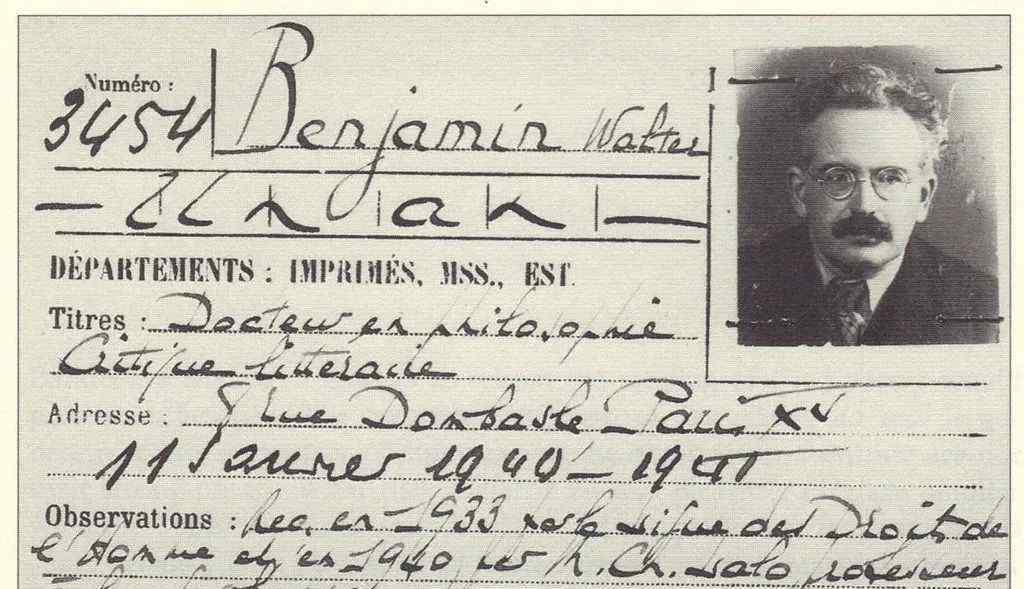 Numéro :
3454 Benjamin Walter
— Un | an | —
DÉPARTEMENTS : IMPRIMÉS, MSS., EST.
Titres : Docteur en philosophie
Critique littéraire
Adresse : rue Dombasle Paris XV
11 Janvier 1940 - 1941
Observations : en 1933 par la ligue des Droits de
l'Homme et en 1940 par M. Ch. Lalo professeur